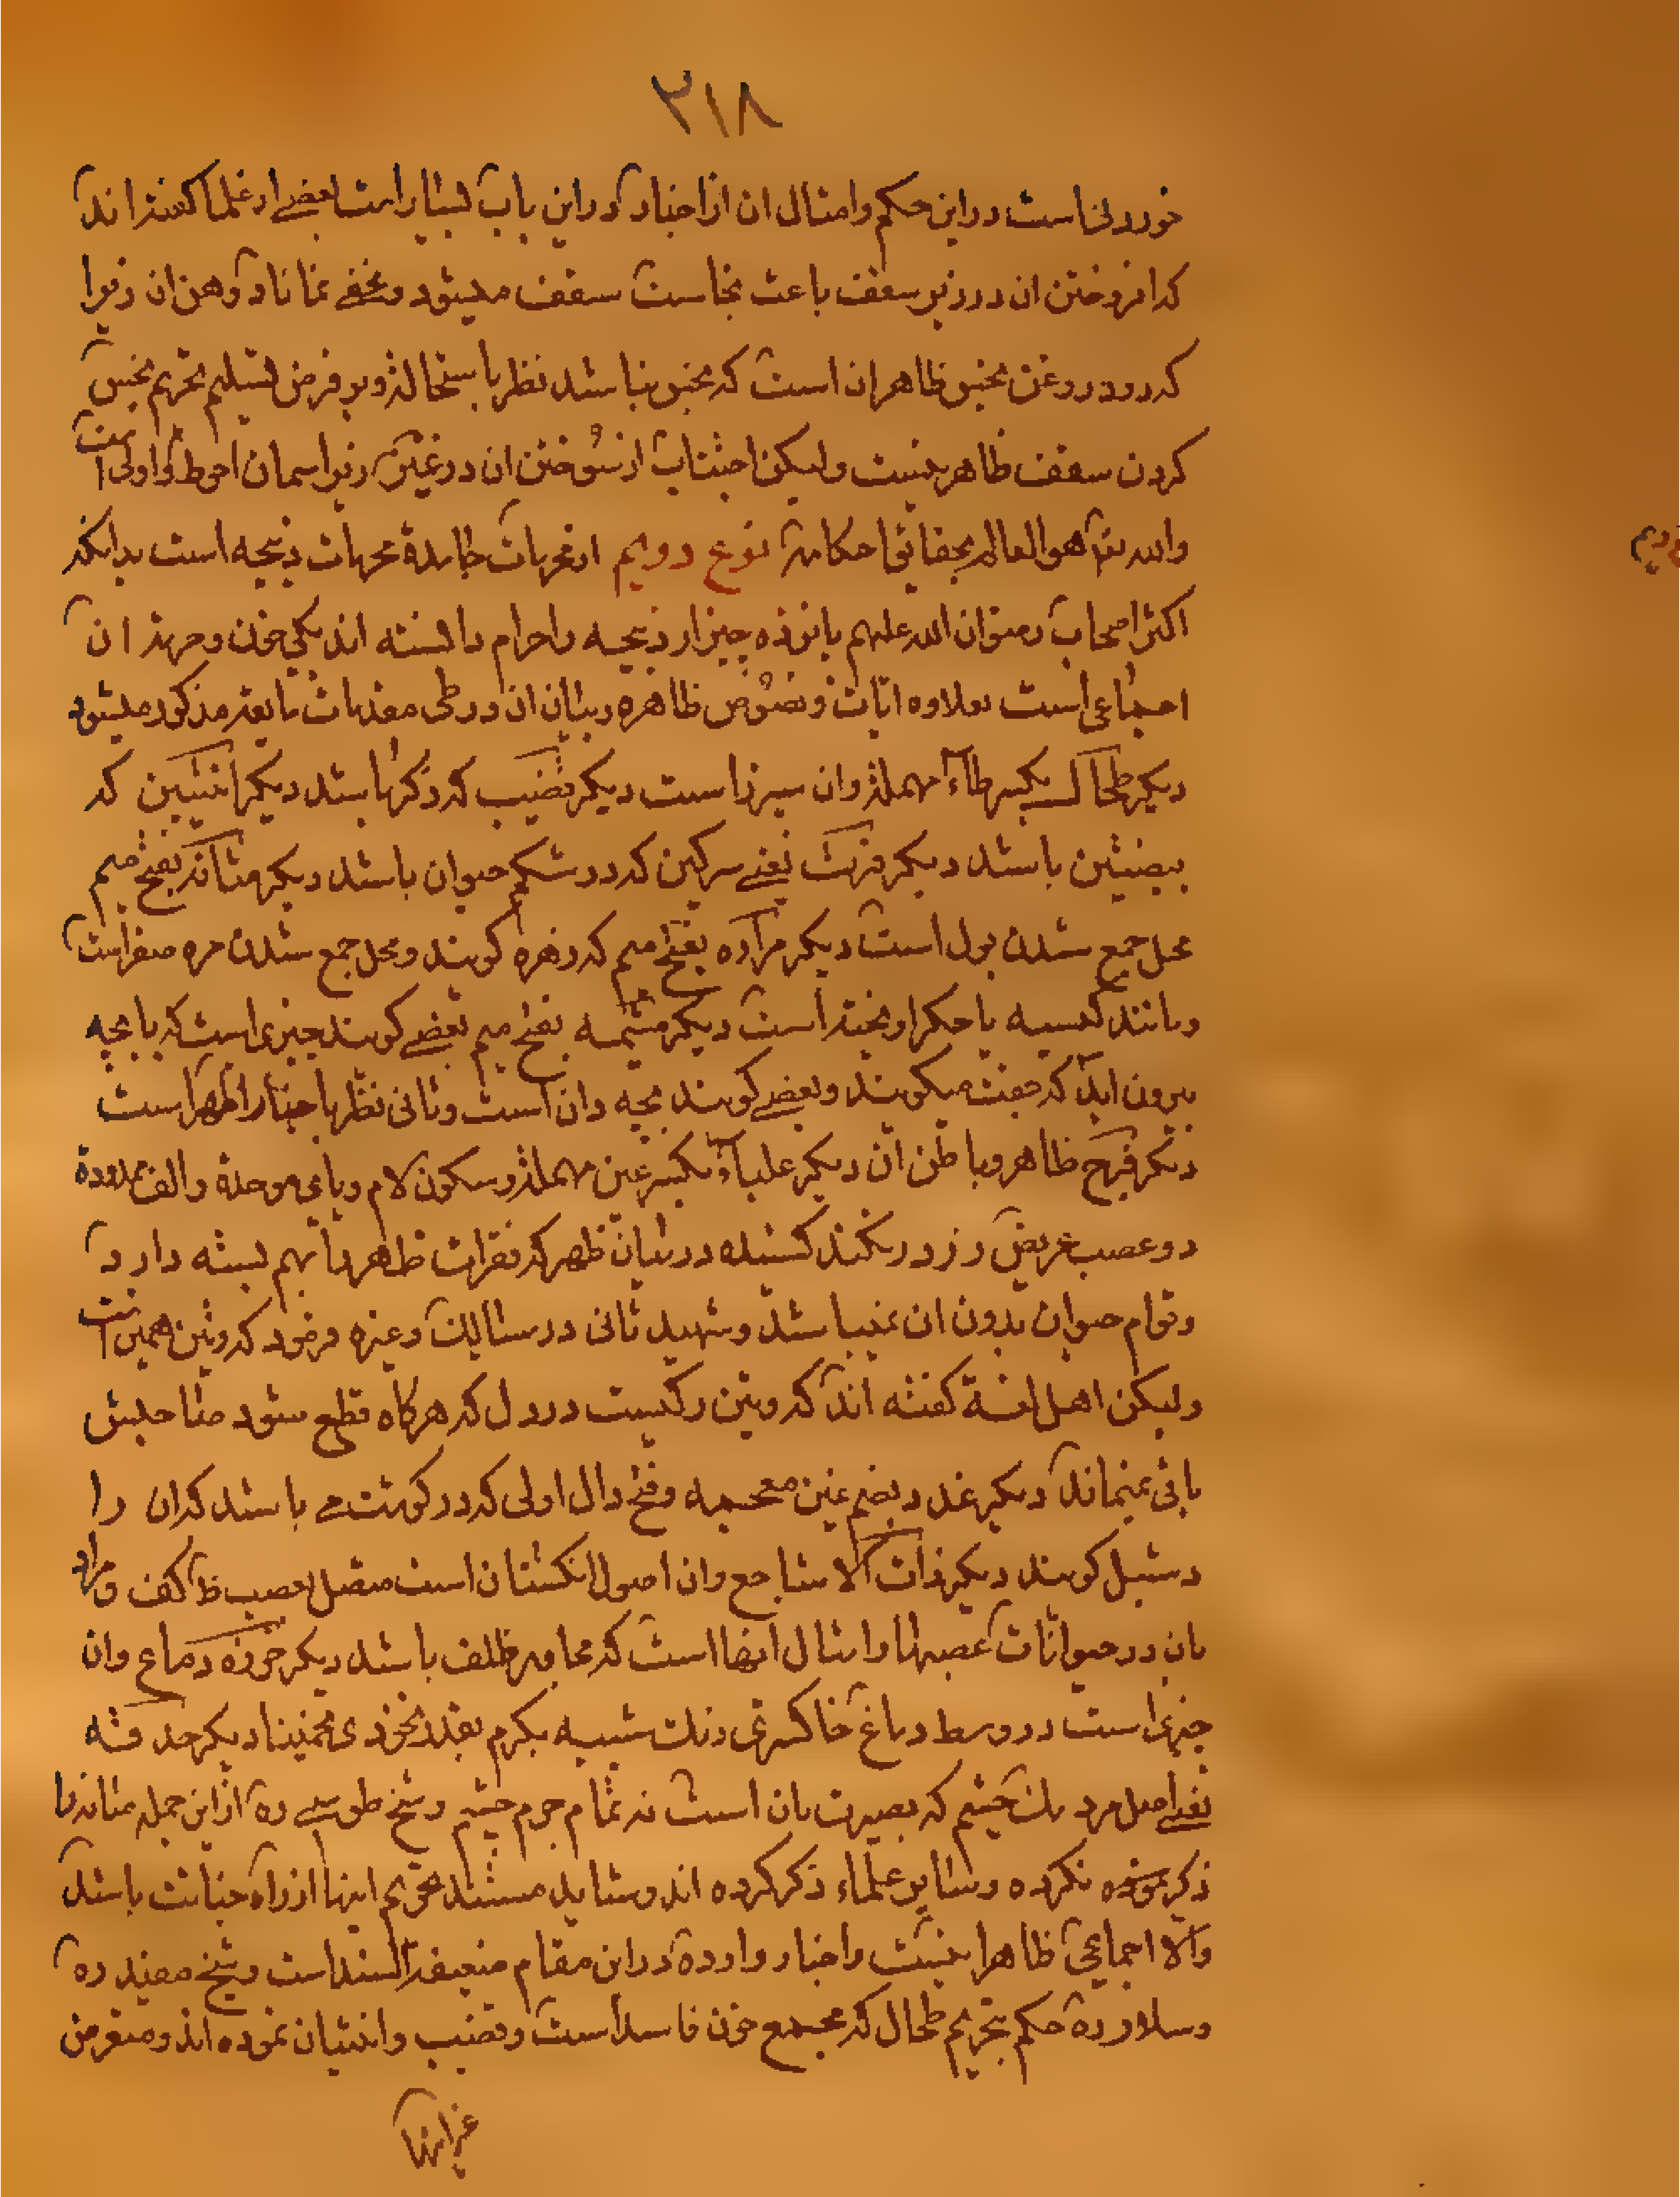 ۳۱۸
خوردنی است در این حکم و امثال ان از اخبار در این باب بسیار است بعضی از علما گفته اند
که افروختن ان در زیر سقف باعث نجاست سقف میشود و مخفی نماناد وهن ان زیرا
که دود روغن نجس ظاهر ان است که نجس نباشد نظر باستحاله و بر فرض تسلیم تحریم نجس
کردن سقف ظاهر نیست ولیکن اجتناب از سوختن ان در غیر زیر اسمان احوط و اولی است
والله هو العالم بحقائق احکامه نوع دویم از محرمات جامده محرمات ذبیحه است بدانکه
اکثر اصحاب رضوان الله علیهم پانزده چیز از ذبیحه را حرام دانسته اند یکی خون و حرمة ان
اجماعی است بعلاوه ایات و نصوص ظاهره و بیان ان در طی مایعه مذکور میشود
دیگر طحال بکسر طاء مهمله و ان سپرز است دیگر قضیب که ذکر باشد دیگر انثیین که
بیضتین باشد دیگر فرث یعنی سرکین که در شکم حیوان باشد دیگر مثانه بفتح میم
محل جمع شدن بول است دیگر مراره بفتح میم که زهره کویند و محل جمع شدن مره صفراست
و مانند کیسه با جکر اویخته است دیگر مشیمه بفتح میم بعضی کویند چیزی است که با بچه
بیرون اید که جفت میکویند و بعضی کویند بچه دان است و ثانی نظر باخبار اظهر است
دیگر فرج ظاهر و باطن ان دیگر علباء بکسر عین مهمله و سکون لام و بای موحدة و الف ممدودة
دو عصب عریض زرد رنکند کشیده در میان ظهر که فقرات ظهر را بهم بسته دارد
و قوام حیوان بدون ان نمیباشد و شهید ثانی در مسالک و غیره فرمود که وتین همین است
ولیکن اهل لغة کفته اند که وتین رکیست در دل که هرکاه قطع شود صاحبش
باقی نمیماند دیگر غدد بضم غین معجمه و فتح دال اولی که در کوشت می باشد که ان را
دشبل کویند دیگر ذات الاشاجع و ان اصول انکشتان است متصل بعصب ظ کف و مراد
بان در حیوانات عصبها و امثال انها است که مجاور ظلف باشد دیگر خرزه دماغ و ان
چیزی است در وسط دماغ خاکستری رنک شبیه بکرم بقدر نخودی تخمینا دیگر حدقه
یعنی اصل مردمک چشم که بصیرت بان است نه تمام جرم چشم و شیخ طوسی ره از این جمله مثانه را
ذکر نکرده و سایر علماء ذکر کرده اند و شاید مستند تحریم اینها از راه خباثت باشد
والا اجماعی ظاهرا نیست و اخبار وارده در این مقام ضعیفة السند است و شیخ مفید ره
و سلار ره حکم بتحریم طحال که مجمع خون فاسد است و قضیب و انثیان نموده اند و متعرض
غیر اینها